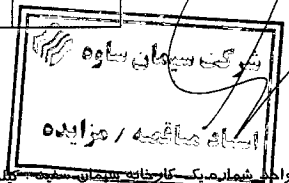 شرکت سیمان ساوه
اسناد مناقصه / مزایده
واحد شماره یک کارخانه سیمان سفید